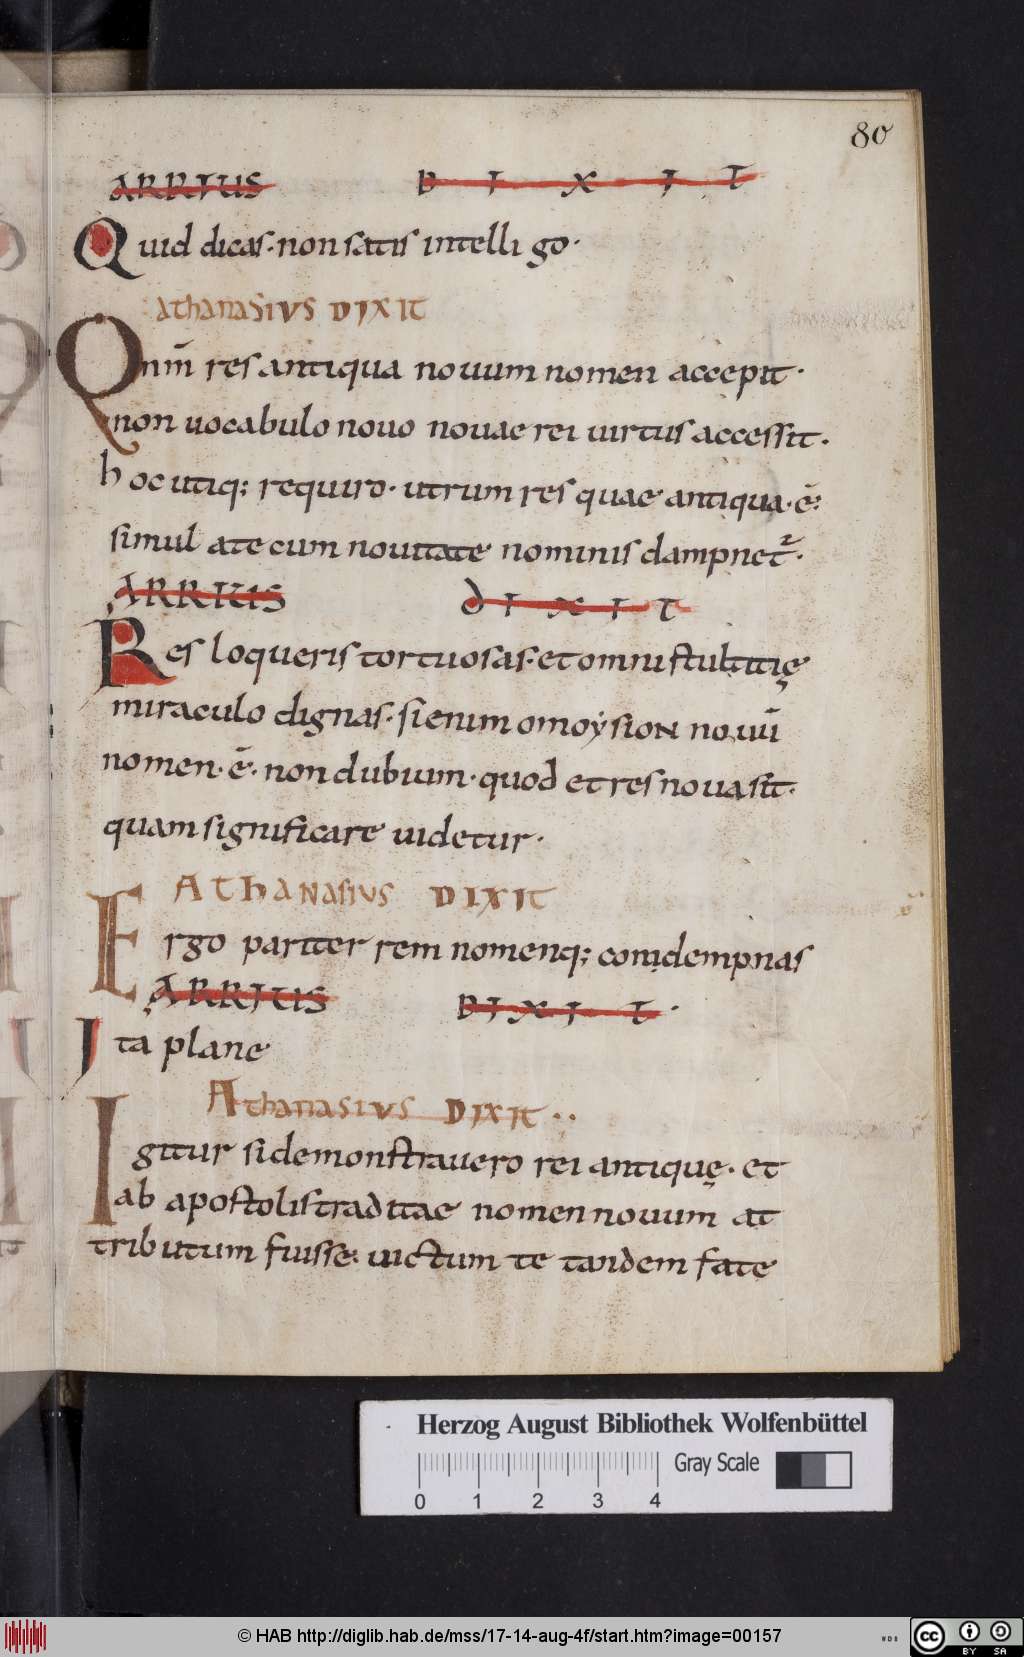 80
ARRIUS DIXIT
Quid dicas· non satis intelligo·
athanasius DIXIT
Qnm̄ res antiqua nouum nomen accepit·
non uocabulo nouo nouae rei uirtus accessit·
hoc utiq; requiro· utrum res quae antiqua· ē;
simul ate cum nouitate nominis dampnet᷑·
ARRIUS dIXIT
Res loqueris tortuosas· et omni stultitię
miraculo dignas· si enim omoẏsioN nouū
nomen· ē· non dubium· quod et res noua sit·
quam significare uidetur·
AthaNasius DIXIT
Ergo pariter rem nomenq; comdempnas
ARRIUS DIXIT·
Ita plane
Athanasius DIXIT··
Igitur si demonstrauero rei antiquę· et
ab apostolis traditae nomen nouum at
tributum fuisse· uictum te tandem fate
Herzog August Bibliothek Wolfenbüttel
Gray Scale
0 1 2 3 4
© HAB http://diglib.hab.de/mss/17-14-aug-4f/start.htm?image=00157
WDB
cc BY SA